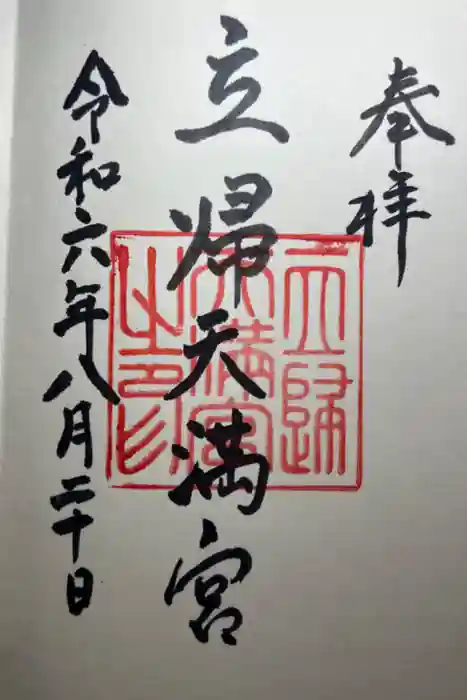 奉拝
立帰天満宮
立歸天満宮之印
令和六年八月二十日